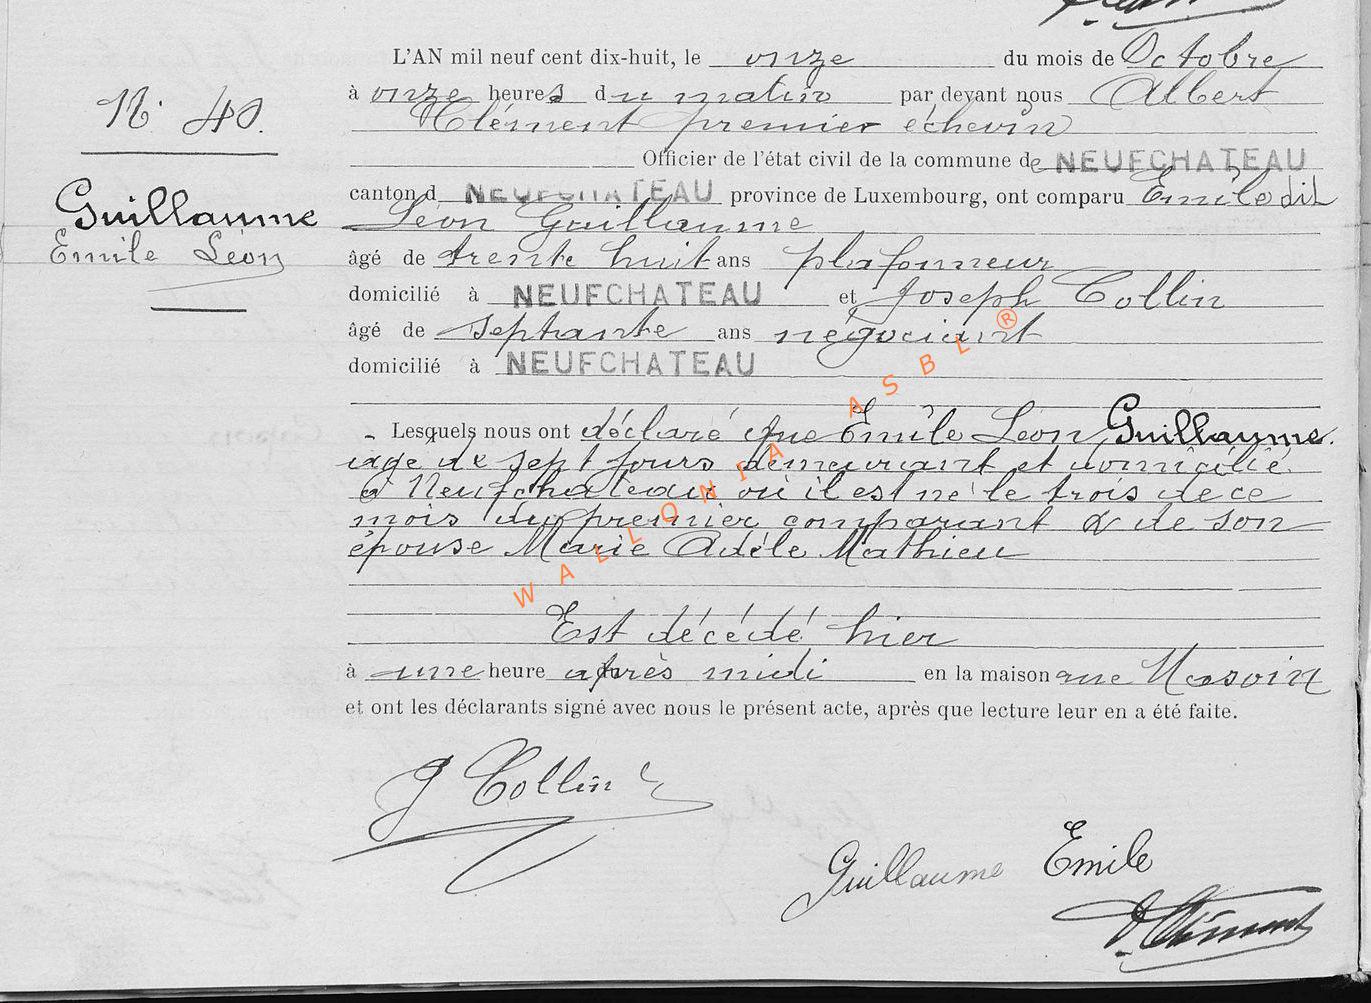 L'AN mil neuf cent dix-huit, le onze du mois de Octobre
à onze heures du matin par devant nous Albert
N° 40.
Clément premier échevin
Officier de l'état civil de la commune de NEUFCHATEAU
canton d NEUFCHATEAU province de Luxembourg, ont comparu Emile dit
Guillaume
Léon Guillaume
Emile Léon
âgé de trente huit ans plafonneur
domicilié à NEUFCHATEAU et Joseph Collin
âgé de septante ans négociant
domicilié à NEUFCHATEAU
Lesquels nous ont déclaré que Emile Léon Guillaume.
âgé de sept jours demeurant et domicilié
à Neufchateau où il est né le trois de ce
mois du premier comparant & de son
épouse Marie Adèle Mathieu
WALLONIA ASBL ®
Est décédé hier
à une heure après midi en la maison rue
et ont les déclarants signé avec nous le présent acte, après que lecture leur en a été faite.
J Collin
Guillaume Emile
Clément